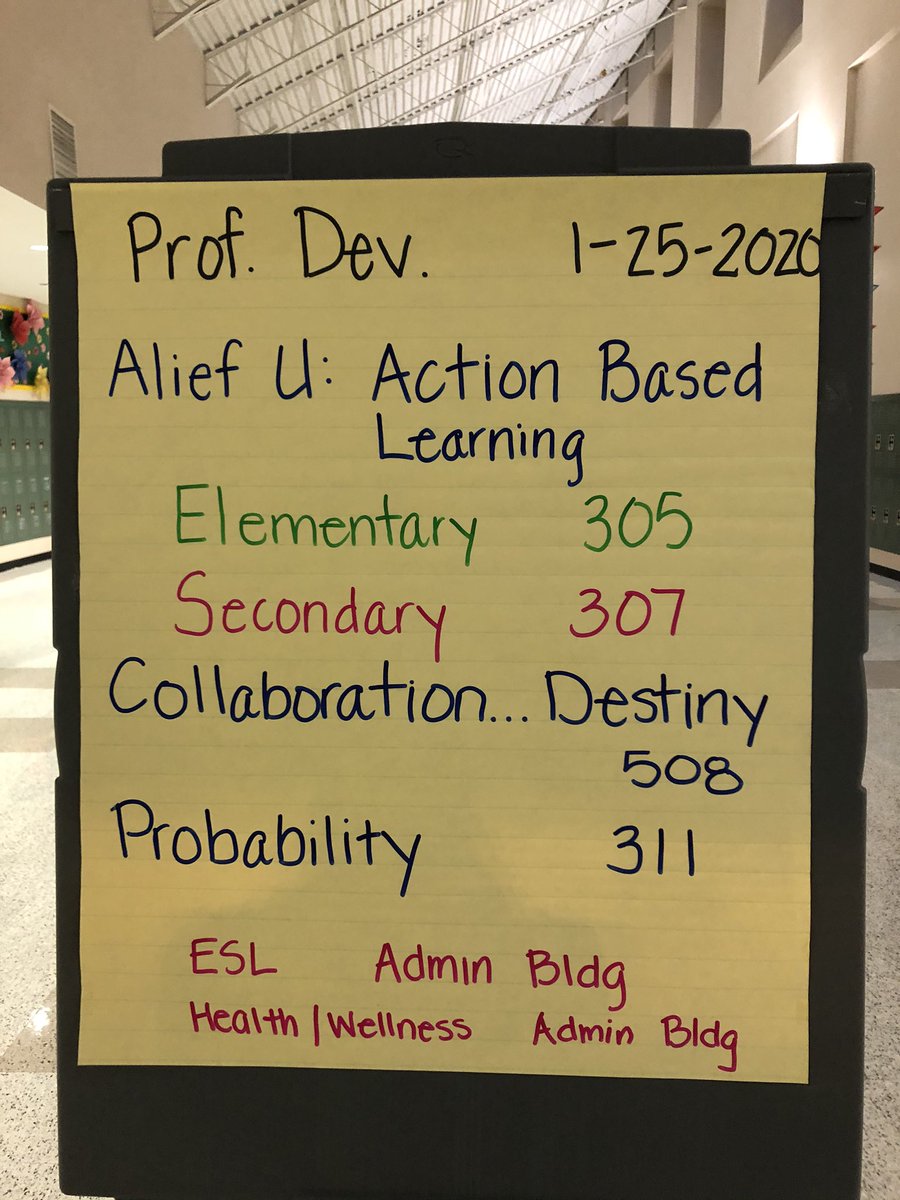 Prof. Dev. 1-25-2020
Alief U: Action Based
Learning
Elementary 305
Secondary 307
Collaboration... Destiny
508
Probability 311
ESL Admin Bldg
Health/Wellness Admin Bldg